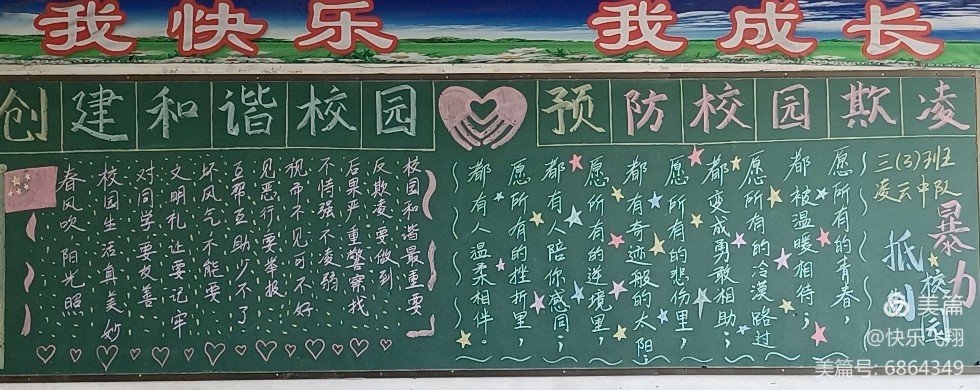 我快乐 我成长
创建和谐校园
预防校园欺凌
春风吹,阳光照
校园生活真美妙
对同学要友善
文明礼让要记牢
坏风气不能要
互帮互助少不了
见恶行要举报
视而不见可不好
不恃强不凌弱
后果严重警察找
反欺凌要做到
校园和谐最重要
三(3)班
凌云中队
抵制
校园
暴力
愿所有的青春,
都被温暖相待;
愿所有的冷漠路过
都变成勇敢相助;
愿所有的悲伤里,
都有奇迹般的太阳;
愿所有的逆境里,
都有人陪你感同;
愿所有的挫折里,
都有人温柔相伴。
美篇
@快乐飞翔
美篇号: 6864349